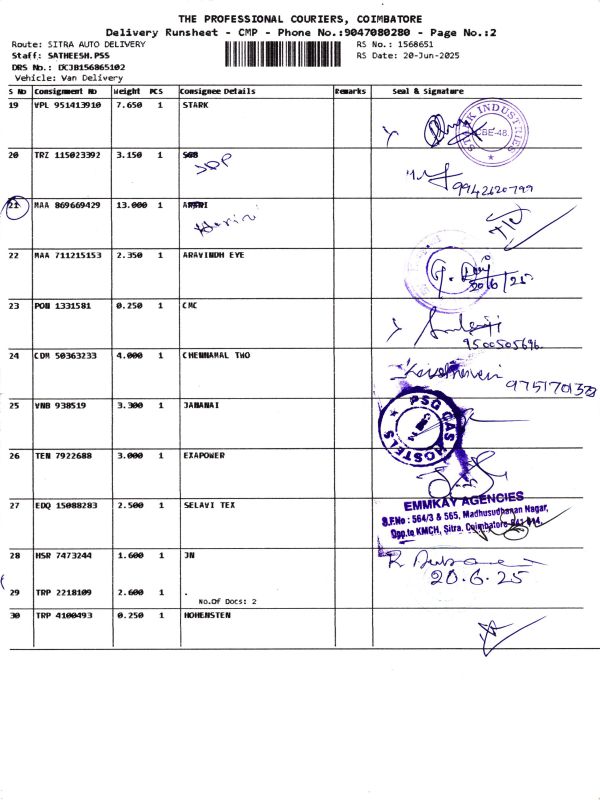 THE PROFESSIONAL COURIERS, COIMBATORE
Delivery Runsheet - CMP - Phone No.:9047080280 - Page No.:2
Route: SITRA AUTO DELIVERY
RS No.: 1568651
Staff: SATHEESH.PSS
RS Date: 20-Jun-2025
DRS No.: DCJB156865102
Vehicle: Van Delivery
S No Consignment No Weight PCS Consignee Details Remarks Seal & Signature
19 VPL 951413910 7.650 1 STARK
STARK INDUSTRIES
CBE-48
20 TRZ 115023392 3.150 1
9942620799
21 MAA 869669429 13.000 1
Harini
22 MAA 711215153 2.350 1 ARAVINDH EYE
20/6/25
23 PON 1331581 0.250 1 CMC
9500505696
24 CDM 50363233 4.000 1 CHENNAMAL TWO
9751701378
25 VNB 938519 3.300 1 JANANAI
PSG CAS HOSTELS
26 TEN 7922688 3.000 1 EXAPOWER
27 EDQ 15088283 2.500 1 SELAVI TEX
EMMKAY AGENCIES
S.F.No : 564/3 & 565, Madhusudhanan Nagar,
Opp.to KMCH, Sitra, Coimbatore-641 014.
28 HSR 7473244 1.600 1 JN
20.6.25
29 TRP 2218109 2.600 1 .
No.Of Docs: 2
30 TRP 4100493 0.250 1 HOHENSTEN